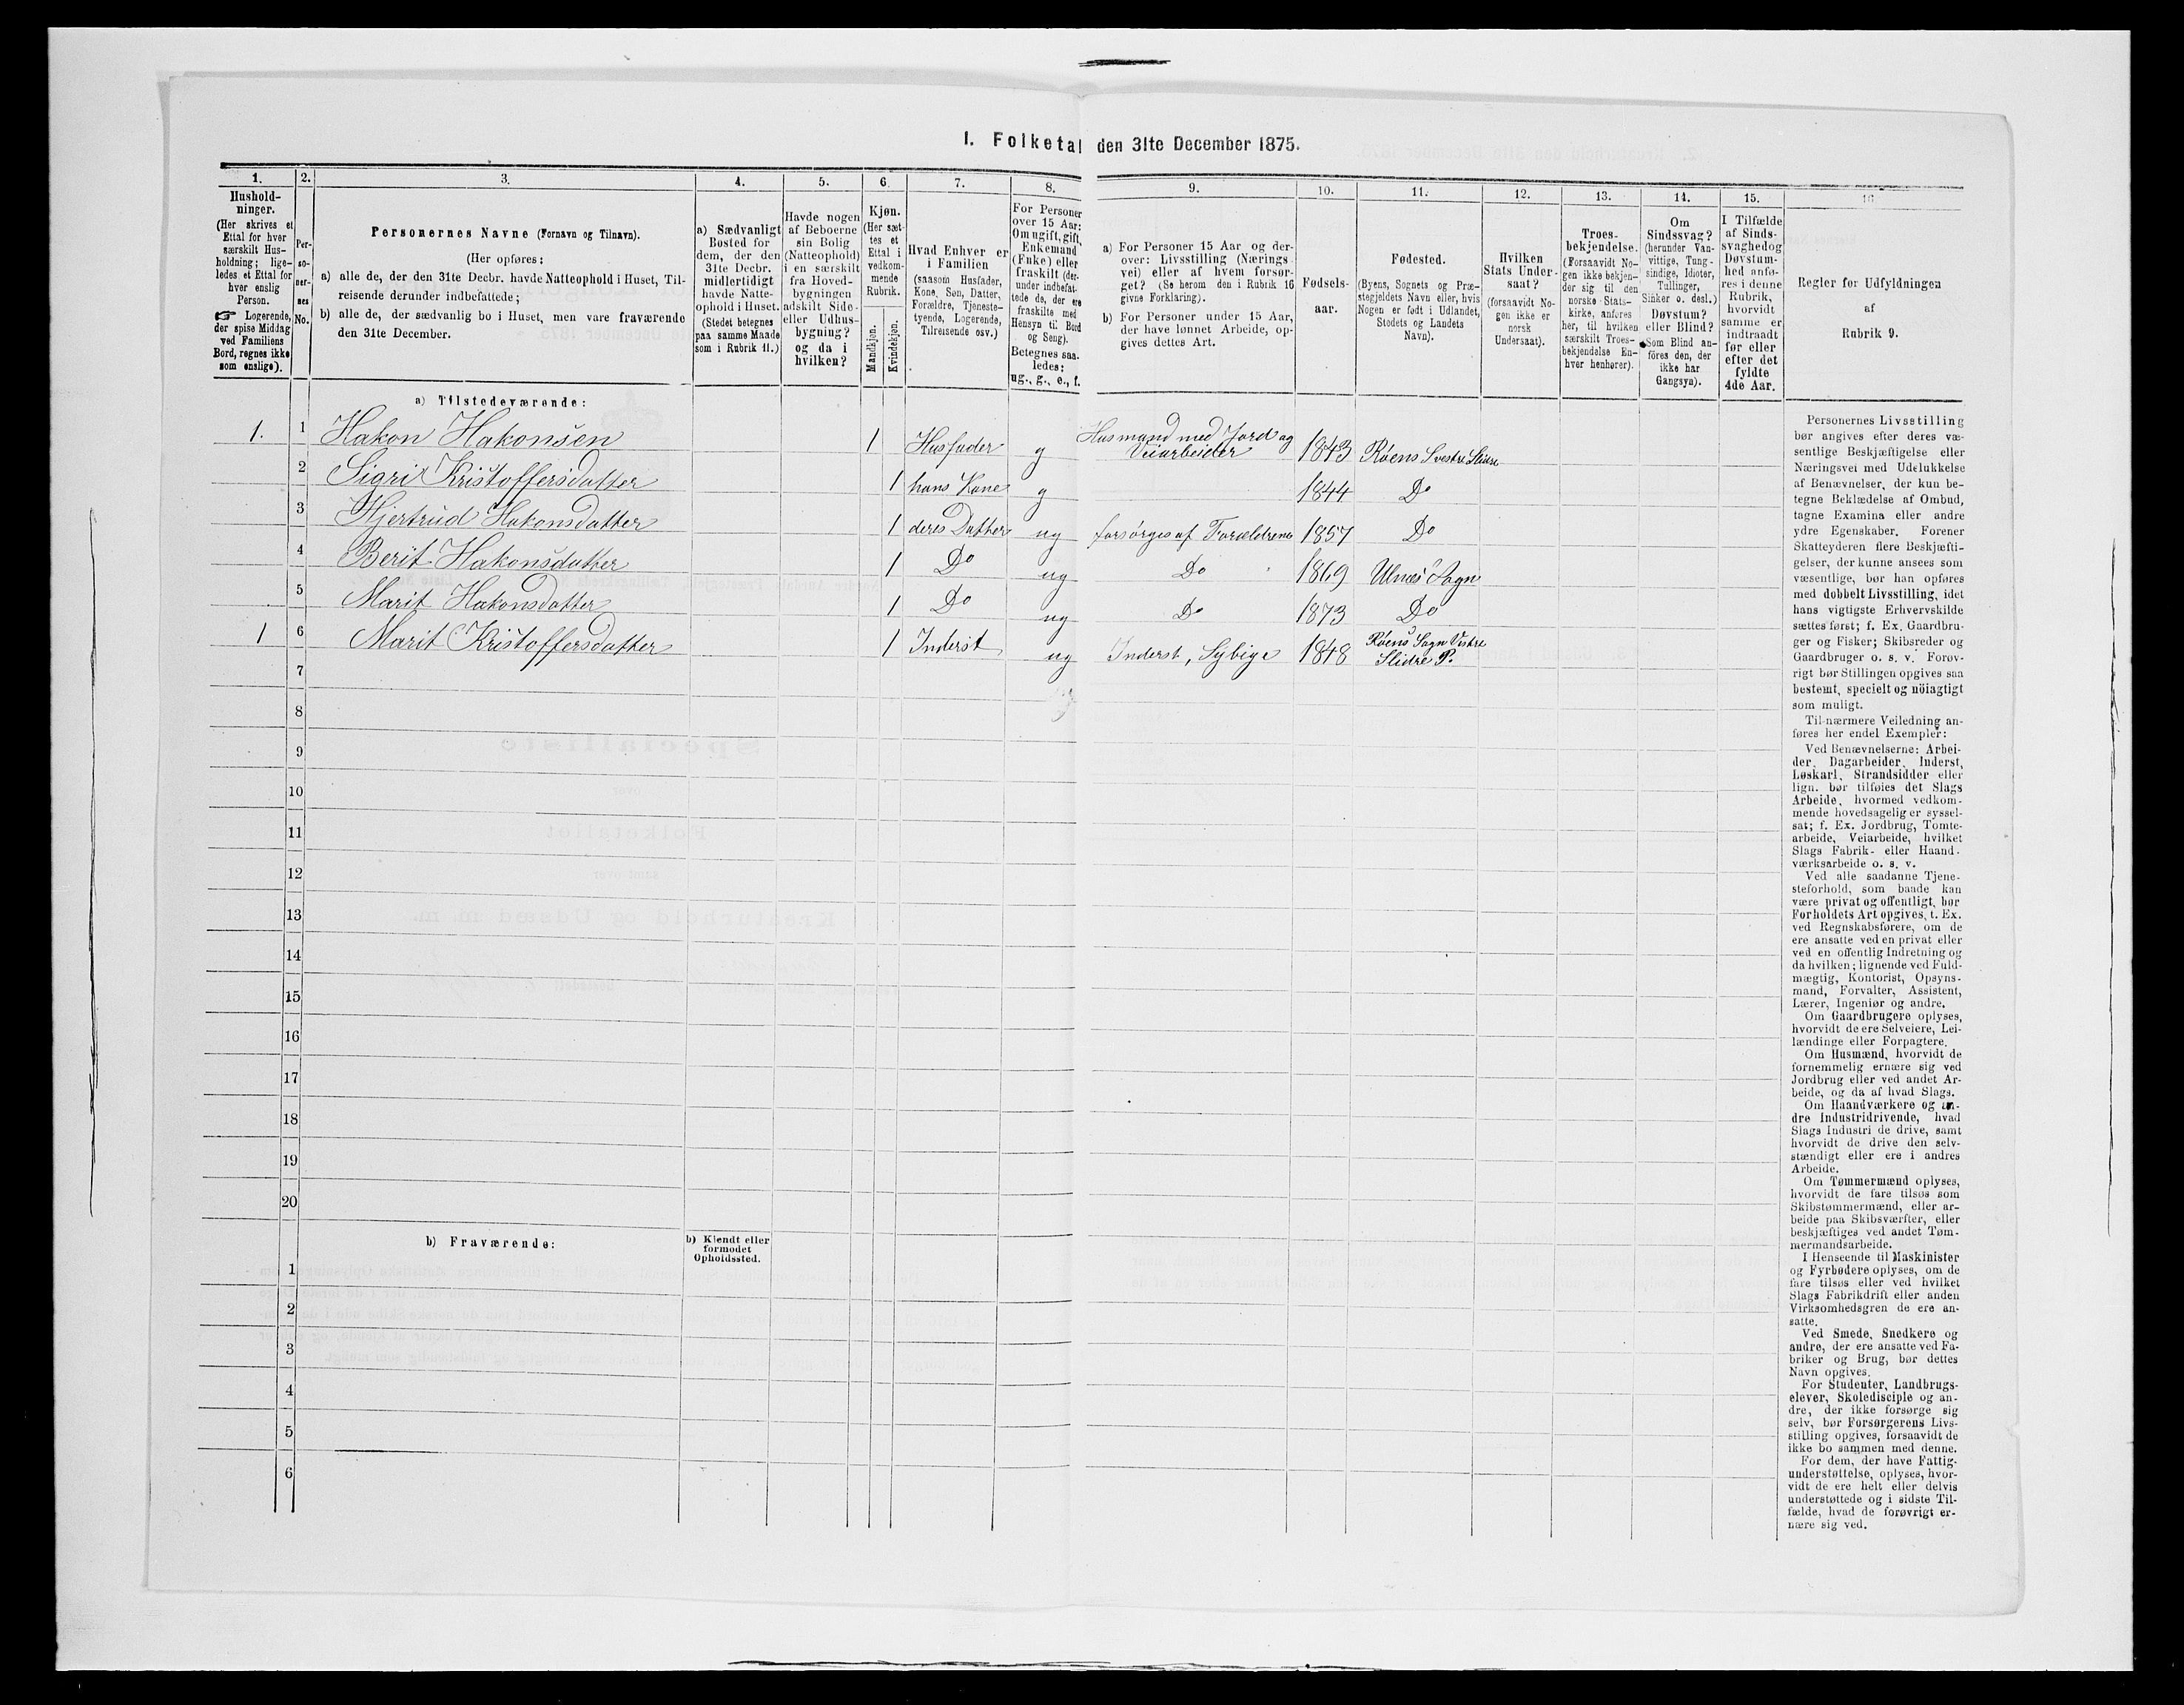 I. Folketal den 31te December 1875.
1.
2.
3.
4.
5.
6.
7.
8.
9.
10.
11.
12.
13.
14.
15.
16
Hushold-
ninger.
(Her skrives et
Ettal for hver
særskilt Hus-
holdning; lige-
ledes et Ettal for
hver enslig
Person.
☞ Logerende,
der spise Middag
ved Familiens
Bord, regnes ikke
som enslige).
Per-
so-
ner-
nes
No.
Personernes Navne (Fornavn og Tilnavn).
(Her opføres:
a) alle de, der den 31te Decbr. havde Natteophold i Huset, Til-
reisende derunder indbefattede;
b) alle de, der sædvanlig bo i Huset, men vare fraværende
den 31te December.
a) Sædvanligt
Bosted for
dem, der den
31te Decbr.
midlertidigt
havde Natte-
ophold i Huset.
(Stedet betegnes
paa samme Maade
som i Rubrik 11.)
Havde nogen
af Beboerne
sin Bolig
(Natteophold)
i en særskilt
fra Hoved-
bygningen
adskilt Side-
eller Udhus-
bygning?
og da i
hvilken?
Kjøn.
(Her sæt-
tes et
Ettal i
vedkom-
mende
Rubrik.
Mandkjøn.
Kvindekjøn.
Hvad Enhver er
i Familien
(saasom Husfader,
Kone, Søn, Datter,
Forældre, Tjeneste-
tyende, Logerende,
Tilreisende osv.)
For Personer
over 15 Aar:
Om ugift, gift,
Enkemand
(Enke) eller
fraskilt (der-
under indbefat-
tede de, der ere
fraskilte med
Hensyn til Bord
og Seng).
Betegnes saa-
ledes:
ug., g., e., f.
a) For Personer 15 Aar og der-
over: Livsstilling (Nærings-
vei) eller af hvem forsør-
get? (Se herom den i Rubrik 16
givne Forklaring).
b) For Personer under 15 Aar,
der have lønnet Arbeide, op-
gives dettes Art.
Fødsels-
aar.
Fødested.
(Byens, Sognets og Præ-
stegjeldets Navn eller, hvis
Nogen er født i Udlandet,
Stedets og Landets
Navn).
Hvilken
Stats Under-
saat?
(forsaavidt No-
gen ikke er
norsk
Undersaat).
Troes-
bekjendelse.
(Forsaavidt No-
gen ikke bekjen-
der sig til den
norske Stats-
kirke, anføres
her, til hvilken
særskilt Troes-
bekjendelse En-
hver henhører).
Om
Sindssvag?
(herunder Van-
vittige, Tung-
sindige, Idioter,
Tullinger,
Sinker o. desl.)
Døvstum?
eller Blind?
(Som Blind an-
føres den, der
ikke har
Gangsyn).
I Tilfælde
af Sinds-
svaghed og
Døvstum-
hed anfø-
res i denne
Rubrik,
hvorvidt
samme er
indtraadt
før eller
efter det
fyldte
4de Aar.
Regler for Udfyldningen
af
Rubrik 9.
a) Tilstedeværende:
1. 1 Hakon Hakonsen 1 Husfader g Husmand med Jord og
Veiarbeider 1843 Røens S vestre Slidre
2 Sigri Kristoffersdatter 1 hans Kone g 1844 Do
3 Hjertrud Hakonsdatter 1 deres Datter ug forsørges af Forældrene 1857 Do
4 Berit Hakonsdatter 1 Do ug Do 1869 Ulnæs Sogn
5 Marit Hakonsdatter 1 Do ug Do 1873 Do
1 6 Marit Kristoffersdatter 1 Inderst ug Inderst, Sybige 1848 Røens Sogn Vestre
Slidre P.
7
8
9
10
11
12
13
14
15
16
17
18
19
20
b) Fraværende:
b) Kjendt eller
formodet
Opholdssted.
1
2
3
4
5
6
Personernes Livsstilling
bør angives efter deres væ-
sentlige Beskjæftigelse eller
Næringsvei med Udelukkelse
af Benævnelser, der kun be-
tegne Beklædelse af Ombud,
tagne Examina eller andre
ydre Egenskaber. Forener
Skatteyderen flere Beskjæfti-
gelser, der kunne ansees som
væsentlige, bør han opføres
med dobbelt Livsstilling, idet
hans vigtigste Erhvervskilde
sættes først; f. Ex. Gaardbru-
ger og Fisker; Skibsreder og
Gaardbruger o. s. v. Forøv-
rigt bør Stillingen opgives saa
bestemt, specielt og nöiagtigt
som muligt.
Til nærmere Veiledning an-
føres her endel Exempler:
Ved Benævnelserne: Arbei-
der, Dagarbeider, Inderst,
Løskarl, Strandsidder eller
lign. bør tilføies det Slags
Arbeide, hvormed vedkom-
mende hovedsagelig er syssel-
sat; f. Ex. Jordbrug, Tomte-
arbeide, Veiarbeide, hvilket
Slags Fabrik- eller Haand-
værksarbeide o. s. v.
Ved alle saadanne Tjene-
steforhold, som baade kan
være privat og offentligt, bør
Forholdets Art opgives, t. Ex.
ved Regnskabsførere, om de
ere ansatte ved en privat eller
ved en offentlig Indretning og
da hvilken; lignende ved Fuld-
mægtig, Kontorist, Opsyns-
mand, Forvalter, Assistent,
Lærer, Ingeniør og andre.
Om Gaardbrugere oplyses,
hvorvidt de ere Selveiere, Lei-
lændinge eller Forpagtere.
Om Husmænd, hvorvidt de
fornemmelig ernære sig ved
Jordbrug eller ved andet Ar-
beide, og da af hvad Slags.
Om Haandværkere og an-
dre Industridrivende, hvad
Slags Industri de drive, samt
hvorvidt de drive den selv-
stændigt eller ere i andres
Arbeide.
Om Tømmermænd oplyses,
hvorvidt de fare tilsøs som
Skibstømmermænd, eller ar-
beide paa Skibsværfter, eller
beskjæftiges ved andet Tøm-
mermandsarbeide.
I Henseende til Maskinister
og Fyrbødere oplyses, om de
fare tilsøs eller ved hvilket
Slags Fabrikdrift eller anden
Virksomhedsgren de ere an-
satte.
Ved Smede, Snedkere og
andre, der ere ansatte ved Fa-
briker og Brug, bør dettes
Navn opgives.
For Studenter, Landbrugs-
elever, Skoledisciple og an-
dre, der ikke forsørge sig
selv, bør Forsørgerens Livs-
stilling opgives, forsaavidt de
ikke bo sammen med denne.
For dem, der have Fattig-
understøttelse, oplyses, hvor-
vidt de ere helt eller delvis
understøttede og i sidste Til-
fælde, hvad de forøvrigt er-
nære sig ved.